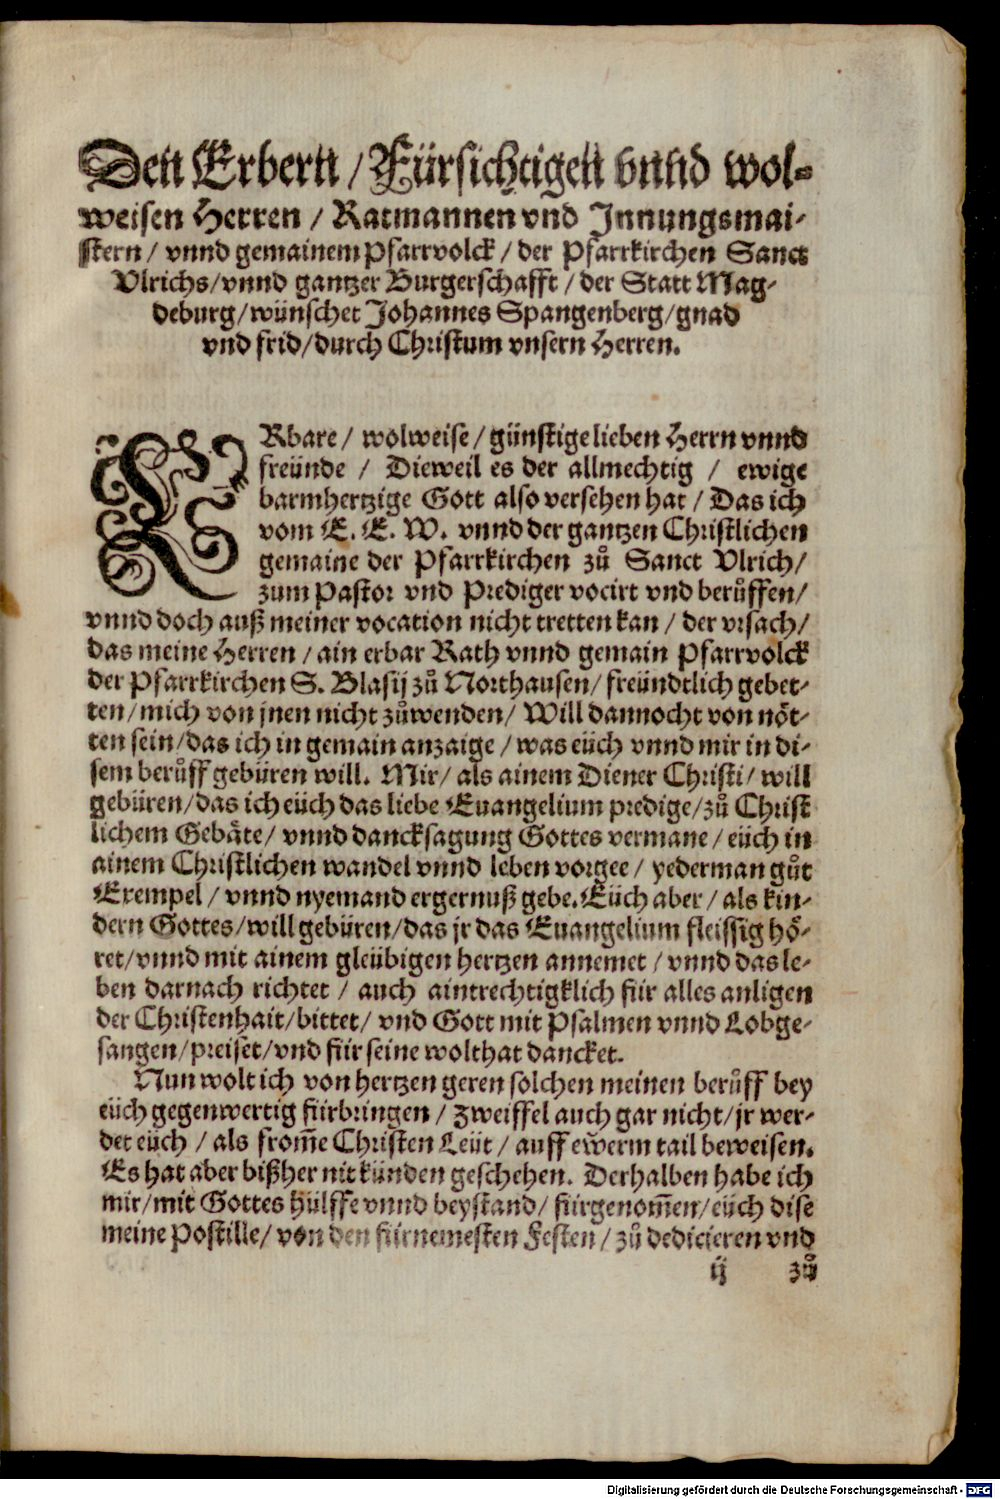 Den Erbern / Fürsichtigen vnnd wol-
weisen Herren / Ratmannen vnd Innungsmai-
stern / vnnd gemainem Pfarrvolck / der Pfarrkirchen Sanct
Vlrichs / vnnd gantzer Burgerschafft / der Statt Mag-
deburg / wünschet Johannes Spangenberg / gnad
vnd frid / durch Christum vnsern Herren.
ERbare / wolweise / günstige lieben Herrn vnnd
freünde / Dieweil es der allmechtig / ewige
barmhertzige Gott also versehen hat / Das ich
vom E. E. W. vnnd der gantzen Christlichen
gemaine der Pfarrkirchen zů Sanct Vlrich /
zum Pastor vnd Prediger vocirt vnd berůffen /
vnnd doch auß meiner vocation nicht tretten kan / der vrsach /
das meine Herren / ain erbar Rath vnnd gemain Pfarrvolck
der Pfarrkirchen S. Blasij zů Northausen / freündtlich gebet-
ten / mich von jnen nicht zůwenden / Will dannocht von nöt-
ten sein / das ich in gemain anzaige / was eüch vnnd mir in di-
sem berůff gebüren will. Mir / als ainem Diener Christi / will
gebüren / das ich eüch das liebe Euangelium predige / zů Christ
lichem Gebäte / vnnd dancksagung Gottes vermane / eüch in
ainem Christlichen wandel vnnd leben vorgee / yederman gůt
Exempel / vnnd nyemand ergernuß gebe. Eüch aber / als kin-
dern Gottes / will gebüren / das jr das Euangelium fleissig hö-
ret / vnnd mit ainem gleübigen hertzen annemet / vnnd das le-
ben darnach richtet / auch aintrechtigklich für alles anligen
der Christenhait / bittet / vnd Gott mit Psalmen vnnd Lobge-
sangen / preiset / vnd für seine wolthat dancket.
Nun wolt ich von hertzen geren solchen meinen berůff bey
eüch gegenwertig fürbringen / zweiffel auch gar nicht / jr wer-
det eüch / als from̃e Christen Leüt / auff ewerm tail beweisen.
Es hat aber bißher nit künden geschehen. Derhalben habe ich
mir / mit Gottes hülffe vnnd beystand / fürgenom̃en / eüch dise
meine Postille / von den fürnemesten Festen / zů dedicieren vnd
ij zů
Digitalisierung gefördert durch die Deutsche Forschungsgemeinschaft - DFG